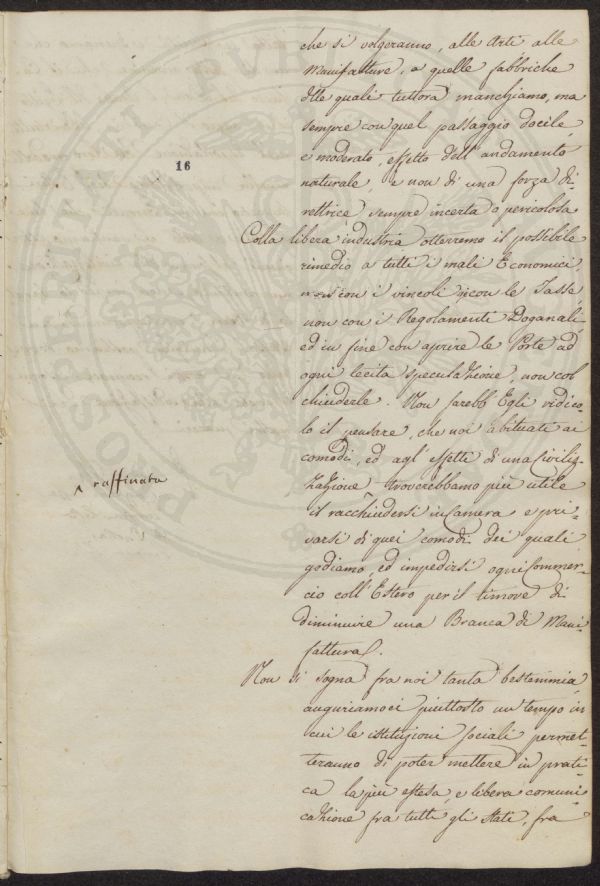 che si volgeranno, alle Arti alle
Manifatture, a quelle fabbriche
delle quali tuttora manchiamo, ma
sempre con quel passaggio docile,
e moderato, effetto dell'andamento
naturale, e non di una forza di-
rettrice sempre incerta o pericolosa
16
Colla libera industria otterremo il possibile
rimedio a tutti i mali Economici,
non con i vincoli, con le Tasse,
non con i Regolamenti Doganali,
ed in fine con aprire le Porte ad
ogni lecita speculazione, non col
chiuderle. Non sarebb'Egli ridico-
lo il pensare, che noi abituati ai
comodi, ed agl'effetti di una Civiliz-
zazione troverebbamo più utile
^ raffinata
il racchiudersi in Camera e pri-
varsi di quei comodi dei quali
godiamo, ed impedirsi ogni Commer-
cio coll'Estero per il timore di
diminuire una Branca di Mani-
fattura.
Non si sogna fra noi tanta bestemmia,
auguriamoci piuttosto un tempo in
cui le istituzioni sociali permet-
teranno di poter mettere in prati-
ca la più estesa, e libera comuni-
cazione fra tutti gli Stati, fra
PROSPERITATI PVB